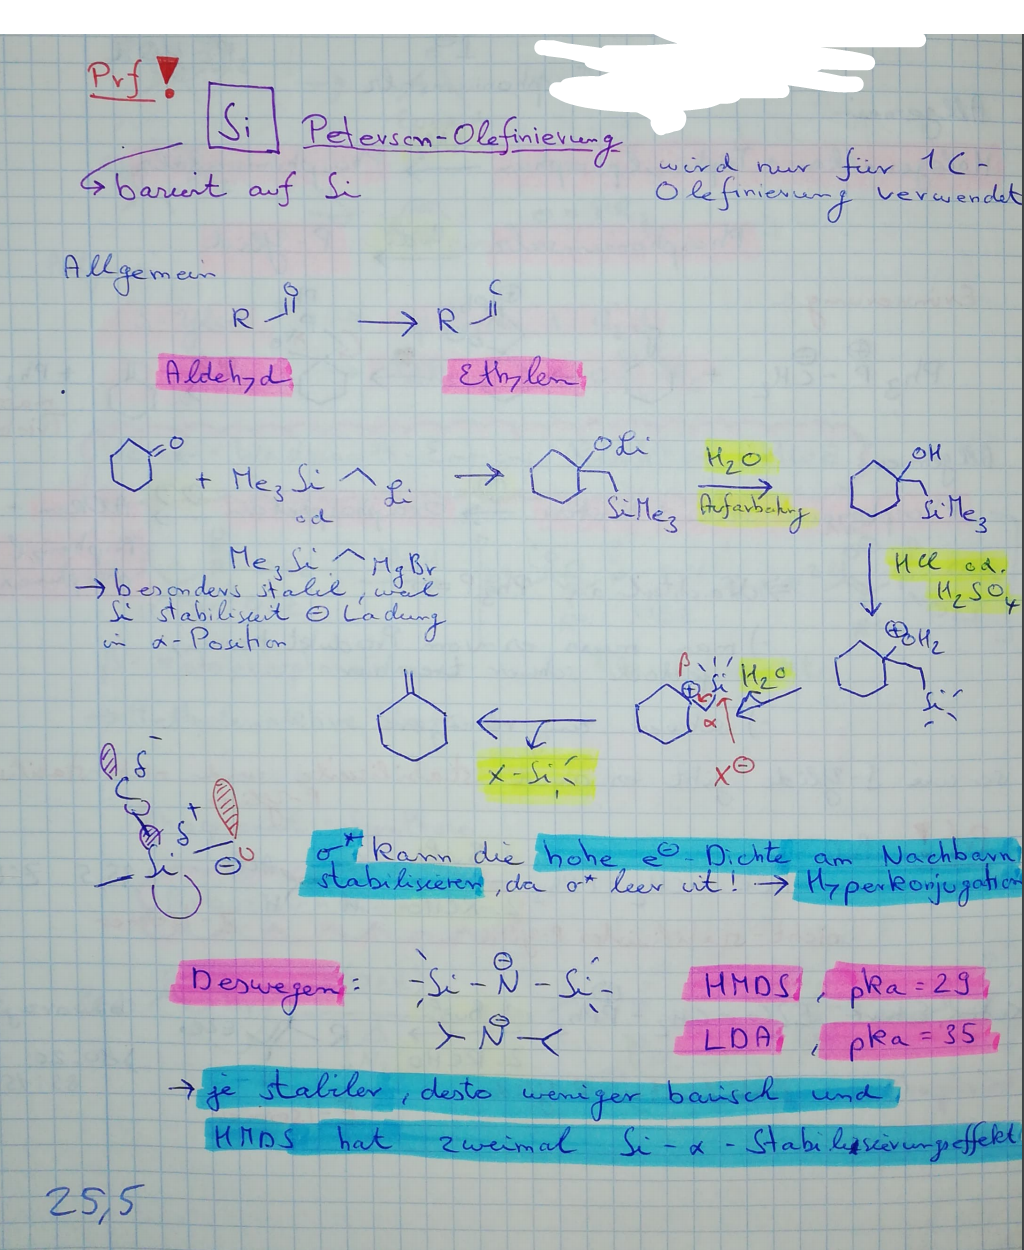 Prf!
Si Peterson-Olefinierung
wird nur für 1 C-
Olefinierung verwendet
↳ basiert auf Si
Allgemein
O C
R → R
Aldehyd Ethylen
O + Me3Si Li → OLi SiMe3 H2O Aufarbeitung OH SiMe3
od
Me3Si MgBr
→ besonders stabil, weil
Si stabilisiert ⊖ Ladung
in α-Position
HCl od.
H2SO4
⊕OH2
Si
H2O
β ⊕ Si
α
X⊖
X-Si
δ-
δ+
Si ⊖
σ* kann die hohe e⊖-Dichte am Nachbarn
stabilisieren, da σ* leer ist! → Hyperkonjugation
Deswegen: -Si-N-Si- HMDS, pka = 29
⊖
N LDA, pka = 35
⊖
→ je stabiler, desto weniger basisch und
HMDS hat zweimal Si-α-Stabilisierungseffekt
25,5